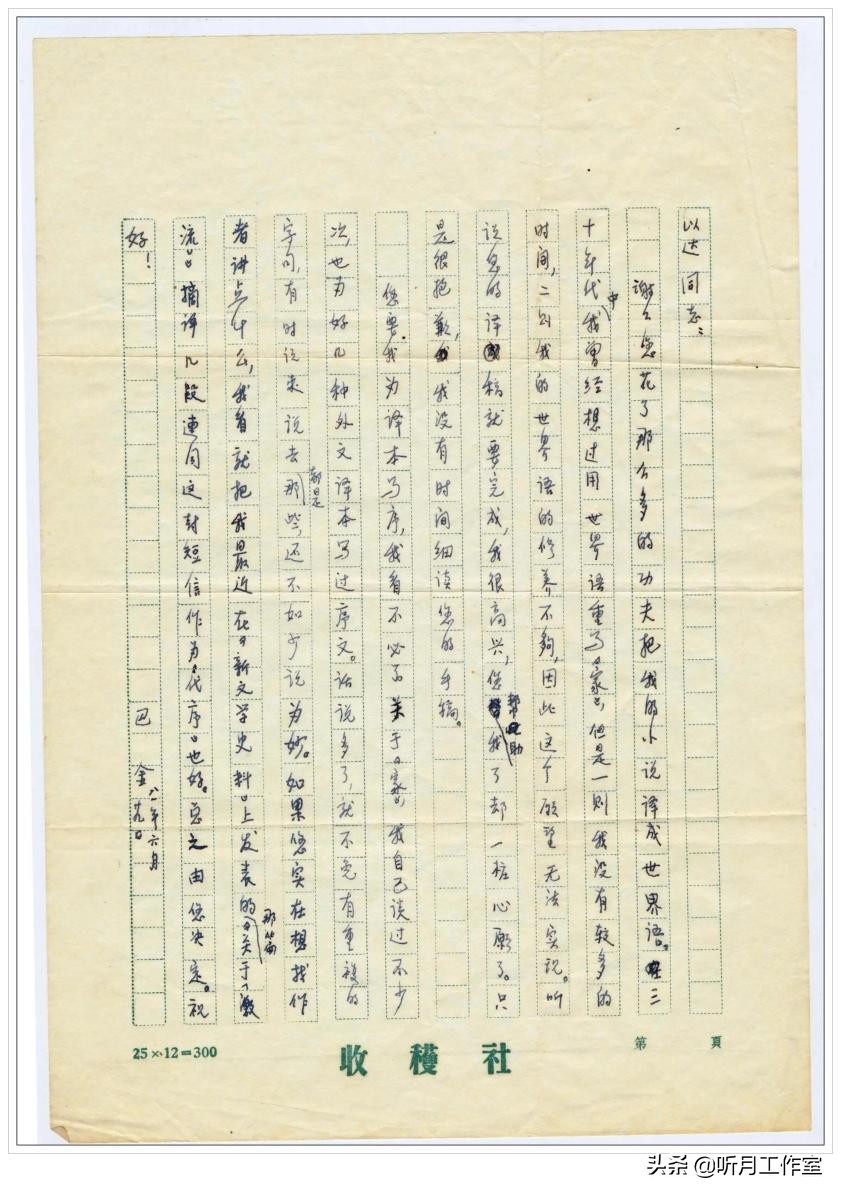 以达同志：
谢谢您花了那么多的功夫把我的小说译成世界语。三
十年代中我曾经想过用世界语重写《家》，但是一则我没有较多的
时间，二则我的世界语的修养不够，因此这个愿望无法实现。听
说您的译稿就要完成，我很高兴，您帮助我了却一桩心愿了。只
是很抱歉，我没有时间细读您的手稿。
您要我为译本写序，我看不必了。关于《家》，我自己谈过不少
次，也为好几种外文译本写过序文。话说多了，就不免有重複的
字句，有时说来说去都是那些，还不如少说为妙。如果您实在想找作
者讲点什么，我看就把我最近在《新文学史料》上发表的那篇《关于〈激
流〉》摘译几段连同这封短信作为《代序》也好。总之由您决定。祝
好！
巴金
八一年六月
25×12=300
收穫社
第 頁
头条 @听月工作室